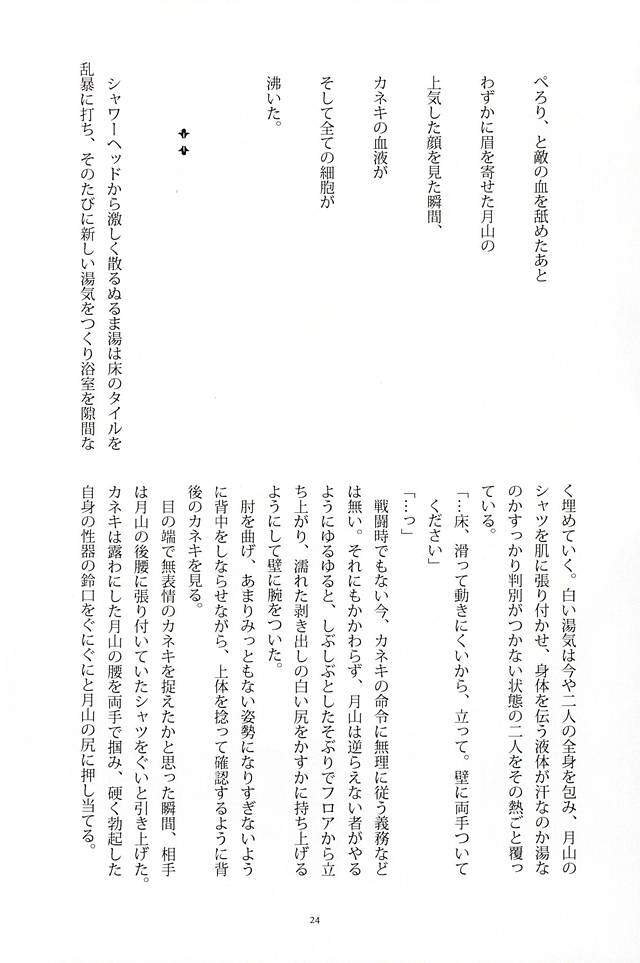 ぺろり、と敵の血を舐めたあと
わずかに眉を寄せた月山の
上気した顔を見た瞬間、
カネキの血液が
そして全ての細胞が
沸いた。
シャワーヘッドから激しく散るぬるま湯は床のタイルを
乱暴に打ち、そのたびに新しい湯気をつくり浴室を隙間な
く埋めていく。白い湯気は今や二人の全身を包み、月山の
シャツを肌に張り付かせ、身体を伝う液体が汗なのか湯な
のかすっかり判別がつかない状態の二人をその熱ごと覆っ
ている。
「…床、滑って動きにくいから、立って。壁に両手ついて
ください」
「…っ」
戦闘時でもない今、カネキの命令に無理に従う義務など
は無い。それにもかかわらず、月山は逆らえない者がやる
ようにゆるゆると、しぶしぶとしたそぶりでフロアから立
ち上がり、濡れた剥き出しの白い尻をかすかに持ち上げる
ようにして壁に腕をついた。
肘を曲げ、あまりみっともない姿勢になりすぎないよう
に背中をしならせながら、上体を捻って確認するように背
後のカネキを見る。
目の端で無表情のカネキを捉えたかと思った瞬間、相手
は月山の後腰に張り付いていたシャツをぐいと引き上げた。
カネキは露わにした月山の腰を両手で掴み、硬く勃起した
自身の性器の鈴口をぐにぐにと月山の尻に押し当てる。
24